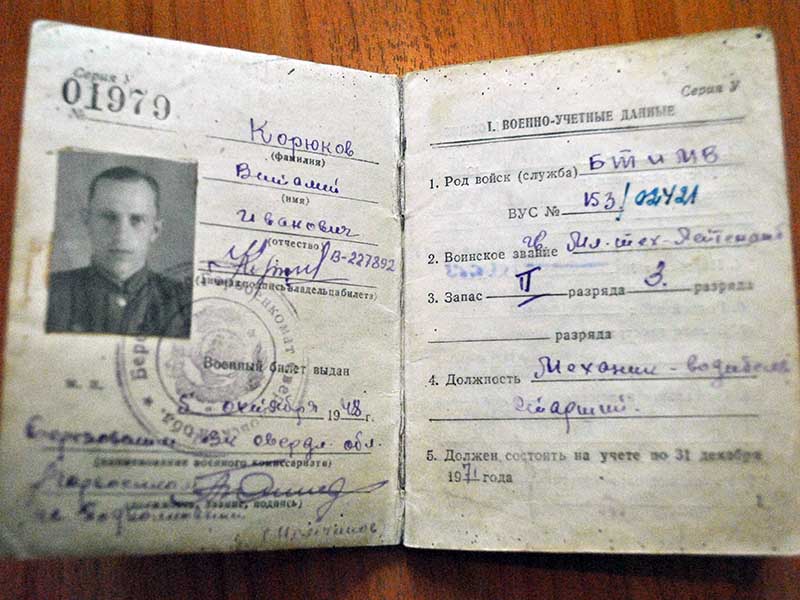 Серия У
01979
№
Корюков
(фамилия)
Виталий
(имя)
Иванович
(отчество) В-227892
(личная подпись владельца билета)
Военный билет выдан
М. П.
5 октября 1948 г.
Березовским РВК Свердл. обл.
(наименование военного комиссариата)
(должность, звание, подпись)
Серия У
I. ВОЕННО-УЧЕТНЫЕ ДАННЫЕ
1. Род войск (служба) БТ и МВ
ВУС № 153/02421
2. Воинское звание гв Мл-тех-Лейтенант
3. Запас II разряда 3. разряда
разряда
4. Должность Механик-водитель
старший.
5. Должен состоять на учете по 31 декабря
1971 года
1